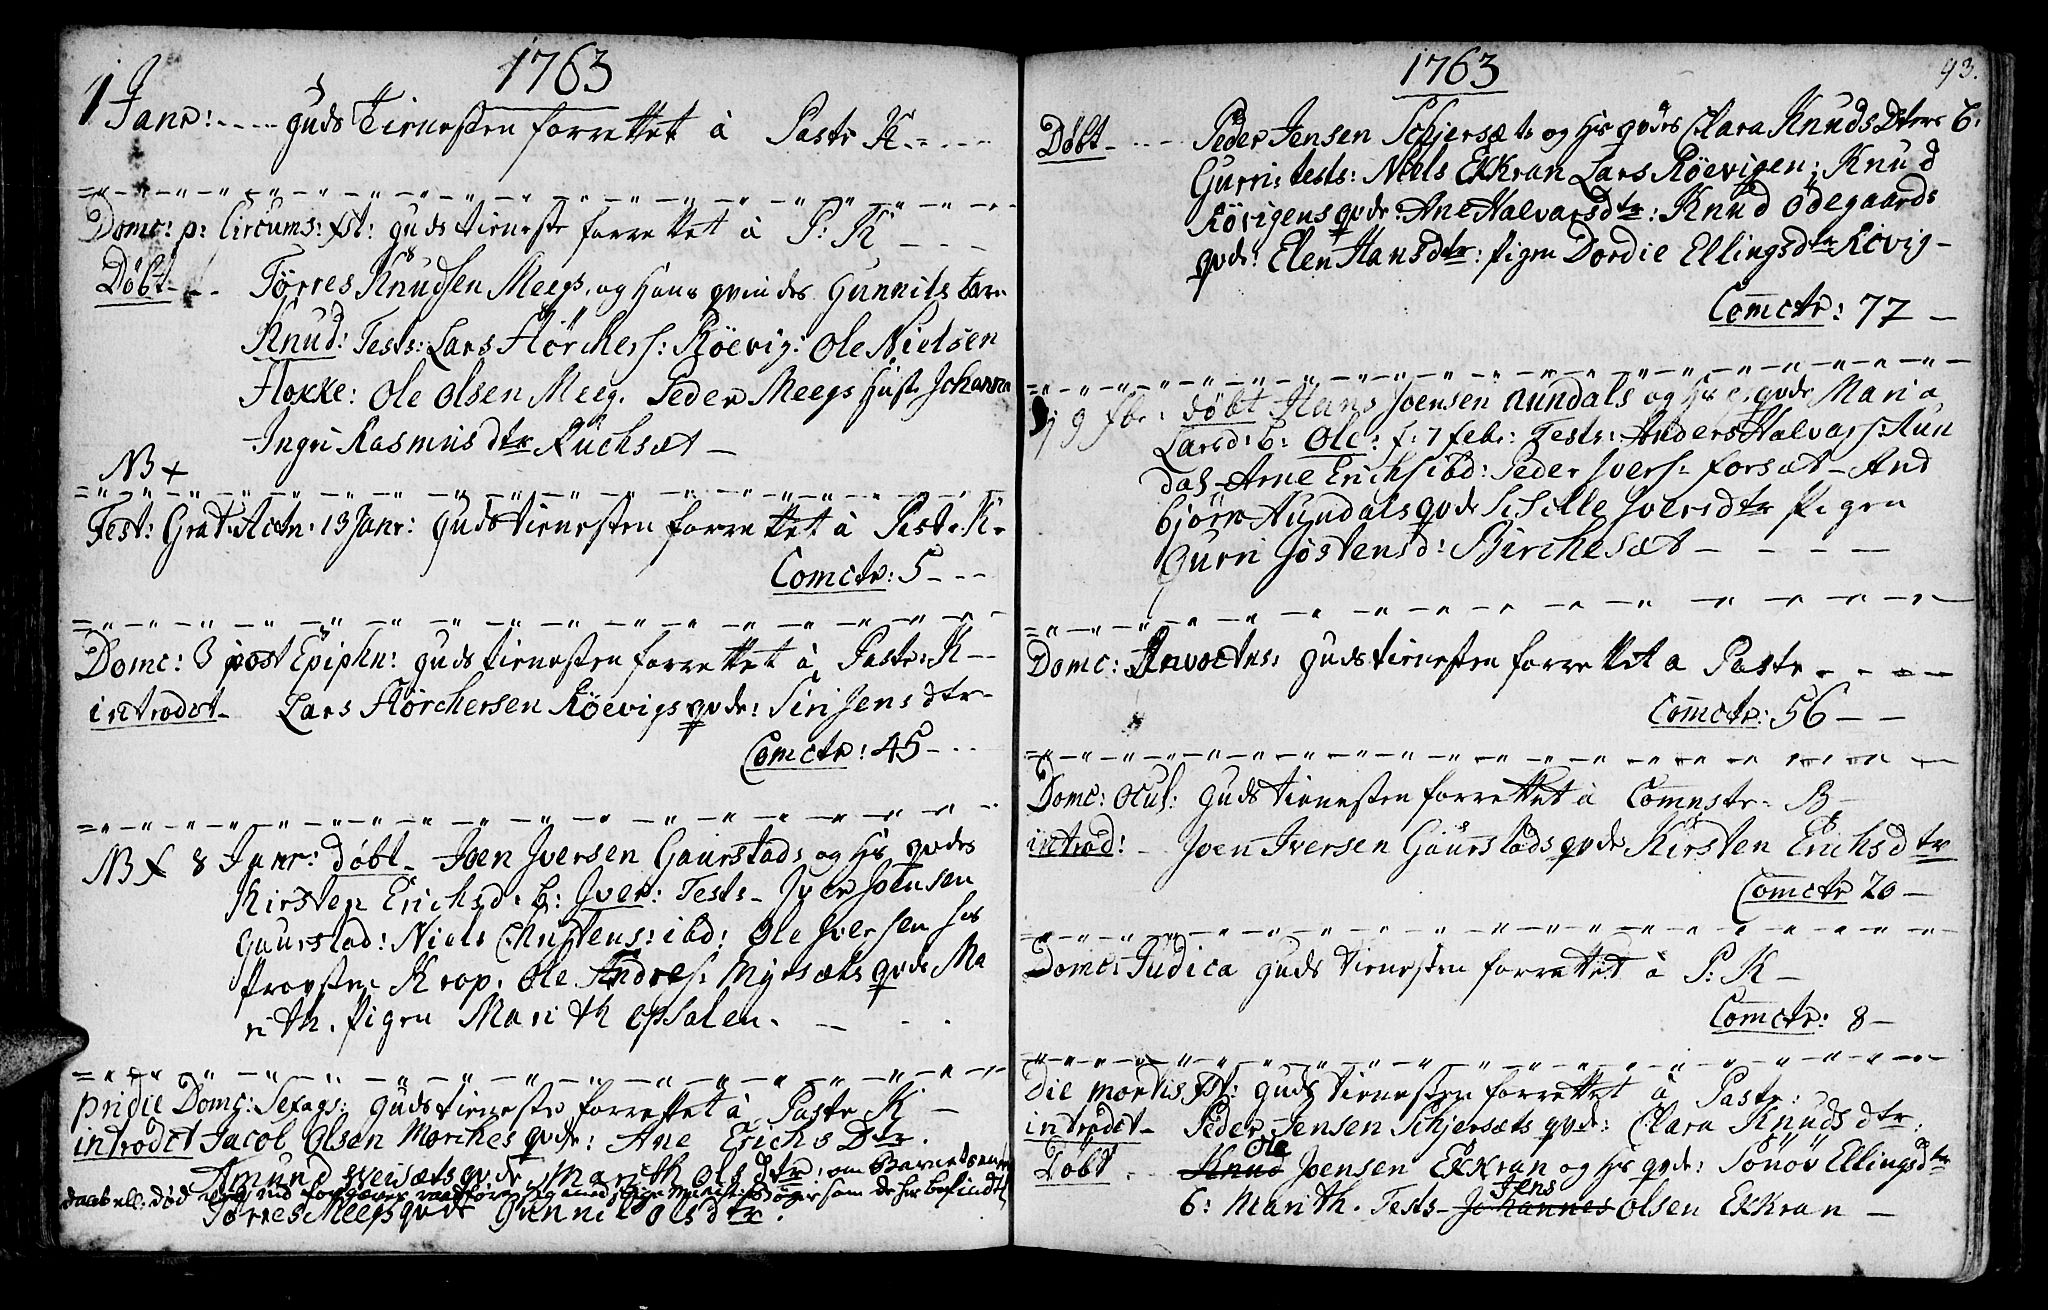 1763
1 Janr: Guds Tienesten forrettet à Pastr K.
Domc: p: Circums: Xst: guds tieneste forrettet à P: K
Døbt Törres Knudsen Meegs og Hans qvindes Gunnils barn
Knud: Tests: Lars Störchers: Röevig: Ole Nielsen
Flokke: Ole Olsen Meeg. Peder Meegs Hust. Johanna
Ingri Rasmus dtr Ruchsæt
NB +
Fest: Grat: Actn: 13 Janr: Guds tienesten forrettet à Past. K.
Comctr: 5
Domc: 3 post Epiphn: guds tienesten forrettet à Pastr: K
introdct Lars Störchersen Röevigs qvde: Siri Jens dtr
Comctr: 45
NB + 8 Janr: døbt Joen Jversen Gaurstads og Hs qvdes
Kirsten Erichsd. b: Jver: Tests Jver Joensen
Gaurstad: Niels Christens: ibd: Ole Jversen hos
Provsten Krop. Ole Andres: Myrsæts qvde Ma
rith. Pigen Marith Opsalen.
pridie Domc: Sexags: Guds tieneste forrettet à Pastr K
introdct Jacob Olsen Morches qvde: Ane Erichs Dtr.
Amund Sveisæts qvde Marith Ols dtr: om Barnets
daab ell: død
Törres Meegs qvde Gunnil Olsdtr.
1763
93.
Døbt Peder Jensen Schjersæts og Hs qvdes Clara Knuds Dters b:
Gurri: tests: Niels Ekkran Lars Röevigen: Knud
Rövigens qvde: Ane Halvarsdtr: Knud Ödegaards
qvde: Elen Hansdtr: Pigen Dordie Ellingsdtr Rövig
Comctr: 77
9 Fbr: døbt Hans Joensen Aundals og Hs qvde Maria
Larsd: b: Ole: f: 7 febr: Tests: Anders Halvars: Aun
dal Arne Erichs ibd: Peder Jvers: Forsæt And
björn Aundals qvde Sisille Jversdtr Pigen
Gurri Jöstensd: Birchesæt
Domc: Jnvoctus: guds tienesten forrettet a Pastr
Comctr: 56
Domc: Ocul: guds tienesten forrettet à Comnstr. B
introd: Joen Iversen Gaurstads qvde Kirsten Erichsdtr
Comctr 20
Domc: Judica guds tienesten forrettet à P: K
Comctr: 8
Die mortis Xst: guds tienesten forrettet à Pastr:
introdct Peder Jensen Schjersæts qvde: Clara Knudsdtr:
Ole
Døbt Knud Joensen Ekkran og Hs qvde: Sönöv Ellingsdtr
Jens
b: Marith. Tests Johannes Olsen Ekkran